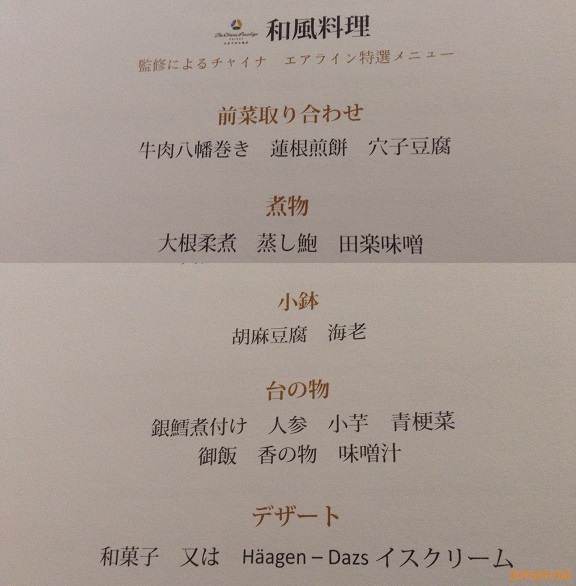 和風料理
監修によるチャイナ エアライン特選メニュー
前菜取り合わせ
牛肉八幡巻き 蓮根煎餅 穴子豆腐
煮物
大根柔煮 蒸し鮑 田楽味噌
小鉢
胡麻豆腐 海老
台の物
銀鱈煮付け 人参 小芋 青梗菜
御飯 香の物 味噌汁
デザート
和菓子 又は Häagen – Dazs イスクリーム